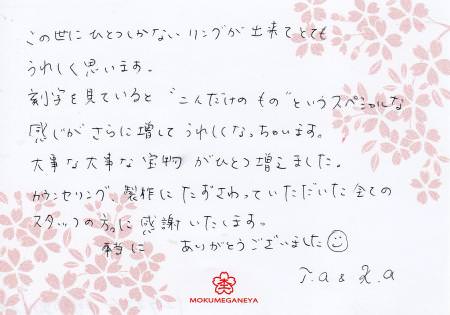 この世にひとつしかないリングが出来てとても
うれしく思います。
刻字を見ていると"二人だけのもの"というスペシャルな
感じがさらに増してうれしくなっちゃいます。
大事な大事な宝物がひとつ増えました。
カウンセリング、製作にたずさわっていただいた全ての
スタッフの方々に感謝いたします。
本当に ありがとうございました
T.a & K.a
MOKUMEGANEYA